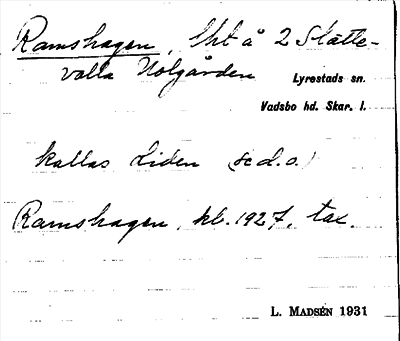 Ramshagen, lht å 2 Slätte-
valla Nolgården
Lyrestads sn.
Vadsbo hd. Skar. l.
kallas Liden (se d. o.)
Ramshagen, kb. 1927, tax.
L. MADSÉN 1931